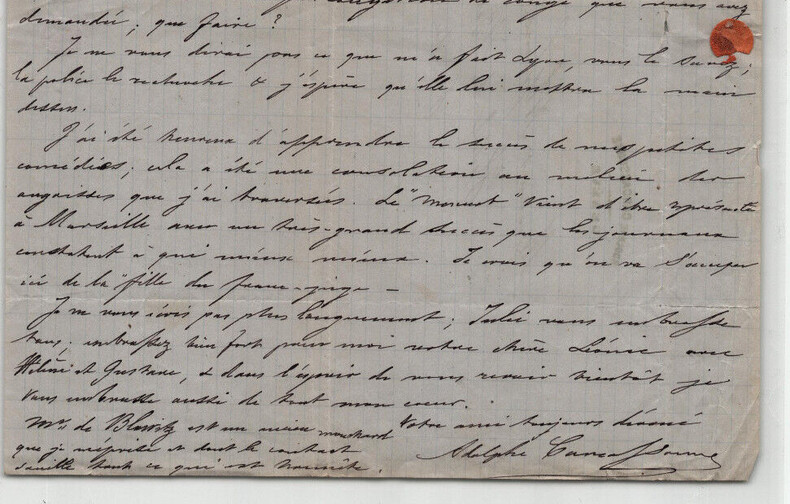 de congé que vous avez
demandée ; que faire ?
Je ne vous dirai pas ce que m'a fait Lyon, vous le savez ;
la police le recherche & j'espère qu'elle lui mettra la main
dessus.
J'ai été heureux d'apprendre le succès de nos petites
comédies ; cela a été une consolation au milieu des
angoisses que j'ai traversées. Le "           " vient d'être représenté
à Marseille avec un très-grand succès que les journaux
constatent à qui mieux mieux. Je crois qu'on va s'occuper
ici de la "fille du franc-juge —
Je ne vous écris pas plus longuement ; Julie vous embrasse
tous. embrassez bien fort pour moi votre chère Léonie avec
Hélène et Gustave, & dans l'espoir de vous revoir bientôt je
vous embrasse aussi de tout mon cœur.
Votre ami toujours dévoué
Adolphe Carcassonne
Mr. de Blowitz est un ancien mouchard
que je méprise et dont le contact
souille tout ce qui est honnête.